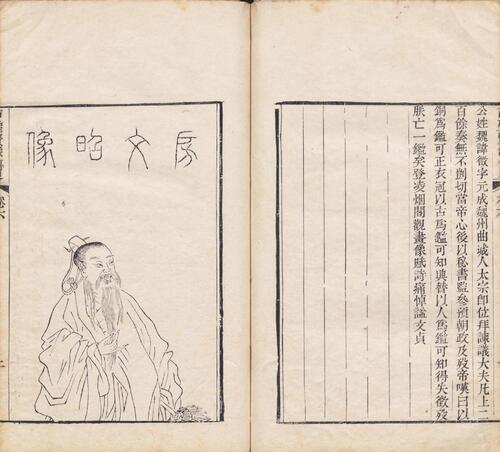 公姓魏諱徵字元成魏州曲城人太宗即位拜諫議大夫凡上二
百餘奏無不剴切當帝心後以秘書監參預朝政及歿帝嘆曰以
銅爲鑑可正衣冠以古爲鑑可知興替以人爲鑑可知得失徵歿
朕亡一鑑矣登凌烟閣觀畫像賦詩痛悼諡文貞
房文昭像
卷六